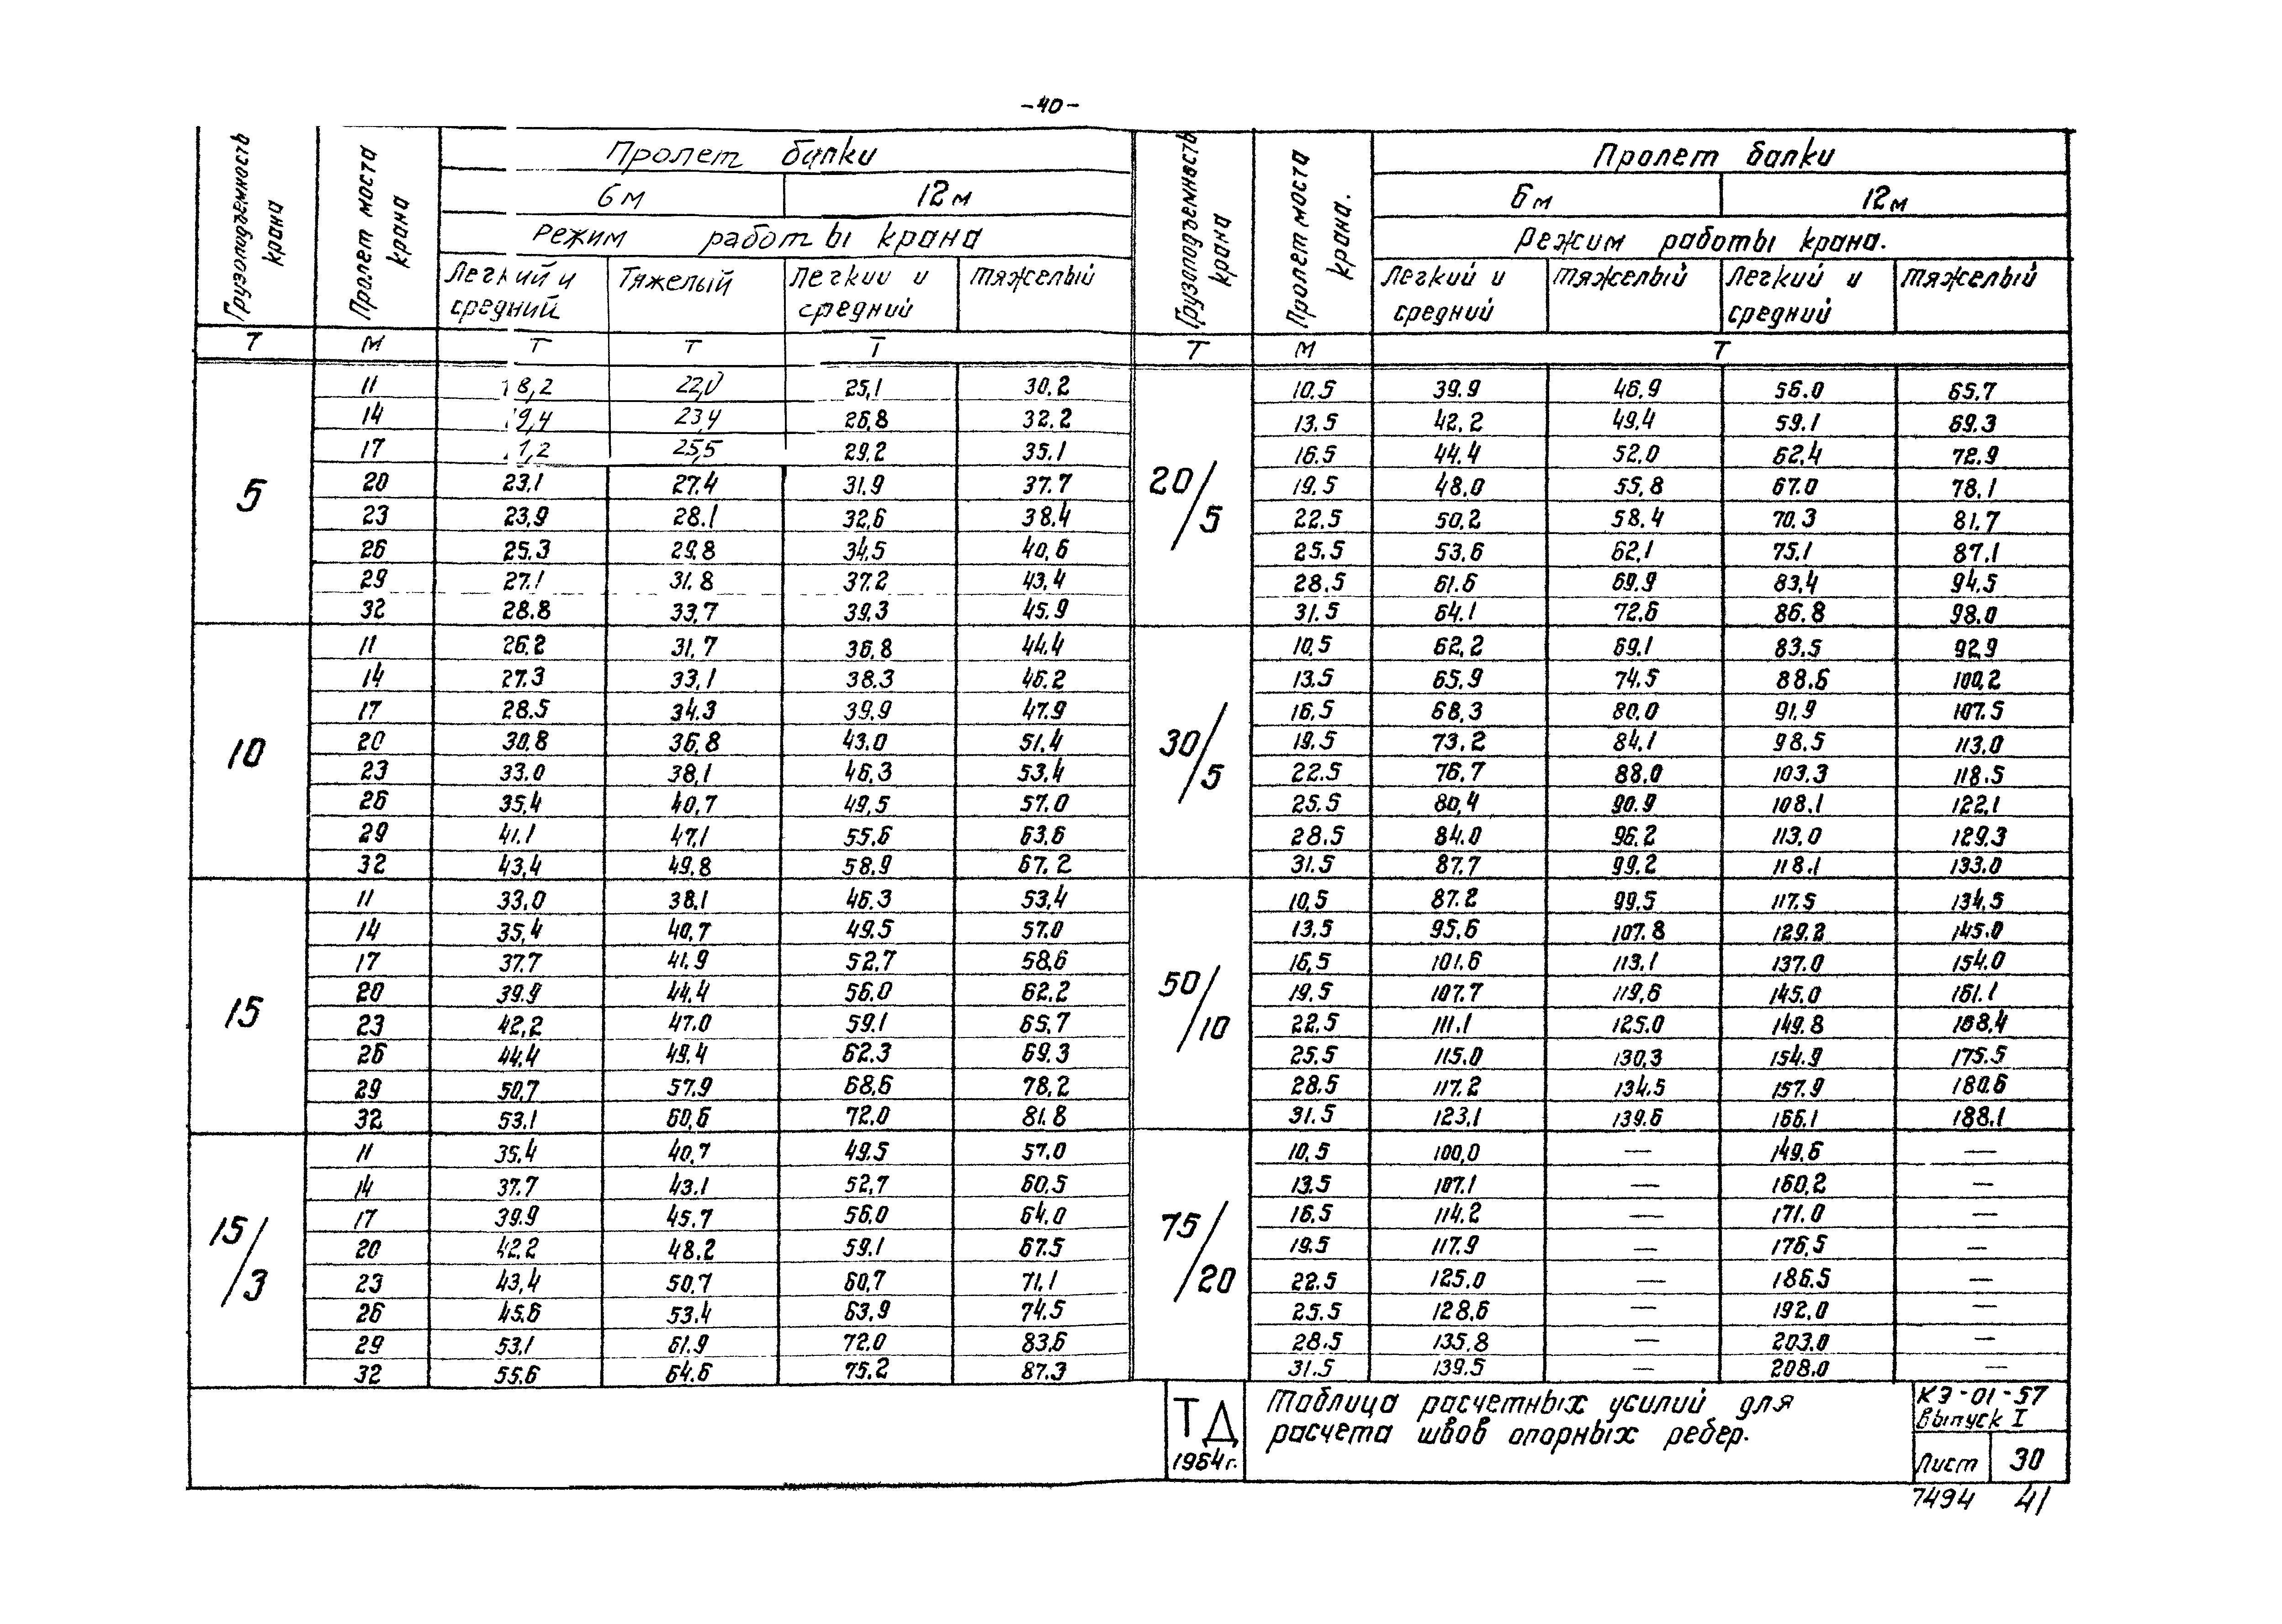 -40-
Грузоподъемность крана
Пролет моста крана
Пролет балки
6м 12м
Режим работы крана
Легкий и средний Тяжелый Легкий и средний тяжелый
Т М Т Т Т
5
11 18,2 22,0 25,1 30.2
14 19,4 23,4 26,8 32.2
17 1,2 25,5 29.2 35.1
20 23,1 27.4 31.9 37.7
23 23,9 28.1 32,6 38.4
26 25.3 29.8 34,5 40,6
29 27.1 31.8 37.2 43,4
32 28.8 33,7 39,3 45.9
10
11 26.2 31,7 36,8 44.4
14 27.3 33,1 38.3 46.2
17 28.5 34.3 39,9 47.9
20 30,8 36,8 43.0 51.4
23 33.0 38,1 46,3 53,4
26 35,4 40,7 49,5 57.0
29 41.1 47,1 55,6 63.6
32 43,4 49,8 58.9 67.2
15
11 33,0 38.1 46.3 53,4
14 35,4 40,7 49.5 57.0
17 37.7 41,9 52,7 58,6
20 39.9 44,4 56.0 62.2
23 42,2 47.0 59.1 65,7
26 44,4 49.4 62.3 69.3
29 50,7 57.9 68,6 78,2
32 53.1 60,6 72.0 81.8
15/3
11 35.4 40,7 49.5 57.0
14 37.7 43.1 52,7 60,5
17 39.9 45.7 56,0 64.0
20 42.2 48.2 59.1 67.5
23 43,4 50,7 60,7 71,1
26 45.6 53.4 63,9 74.5
29 53,1 61.9 72.0 83,6
32 55.6 64.6 75.2 87.3
Грузоподъемность крана
Пролет моста крана.
Пролет балки
6м 12м
Режим работы крана.
Легкий и средний тяжелый Легкий и средний тяжелый
Т М Т
20/5
10.5 39.9 46.9 56.0 65.7
13.5 42.2 49.4 59.1 69.3
16.5 44.4 52.0 62,4 72.9
19.5 48.0 55,8 67.0 78.1
22.5 50,2 58.4 70.3 81.7
25.5 53.6 62,1 75.1 87.1
28.5 61.6 69.9 83,4 94,5
31.5 64.1 72.6 86.8 98.0
30/5
10,5 62,2 69.1 83.5 92,9
13.5 65.9 74.5 88.6 100,2
16,5 68,3 80.0 91.9 107.5
19.5 73.2 84,1 98.5 113.0
22.5 76.7 88.0 103.3 118.5
25.5 80,4 90.9 108.1 122,1
28.5 84.0 96.2 113,0 129.3
31.5 87.7 99.2 118.1 133.0
50/10
10,5 87.2 99,5 117.5 134,5
13.5 95,6 107.8 129.2 145.0
16,5 101.6 113,1 137.0 154.0
19.5 107.7 119,6 145.0 161.1
22.5 111.1 125.0 149.8 168,4
25.5 115.0 130,3 154.9 175.5
28.5 117.2 134.5 157.9 180.6
31.5 123,1 139.6 166.1 188.1
75/20
10,5 100,0 — 149.6 —
13.5 107.1 — 160,2 —
16.5 114.2 — 171.0 —
19.5 117.9 — 176,5 —
22.5 125.0 — 186.5 —
25.5 128,6 — 192,0 —
28.5 135,8 — 203.0 —
31.5 139.5 — 208.0 —
ТД
1964г.
Таблица расчетных усилий для
расчета швов опорных ребер.
КЭ-01-57
Выпуск I
Лист 30
7494 41